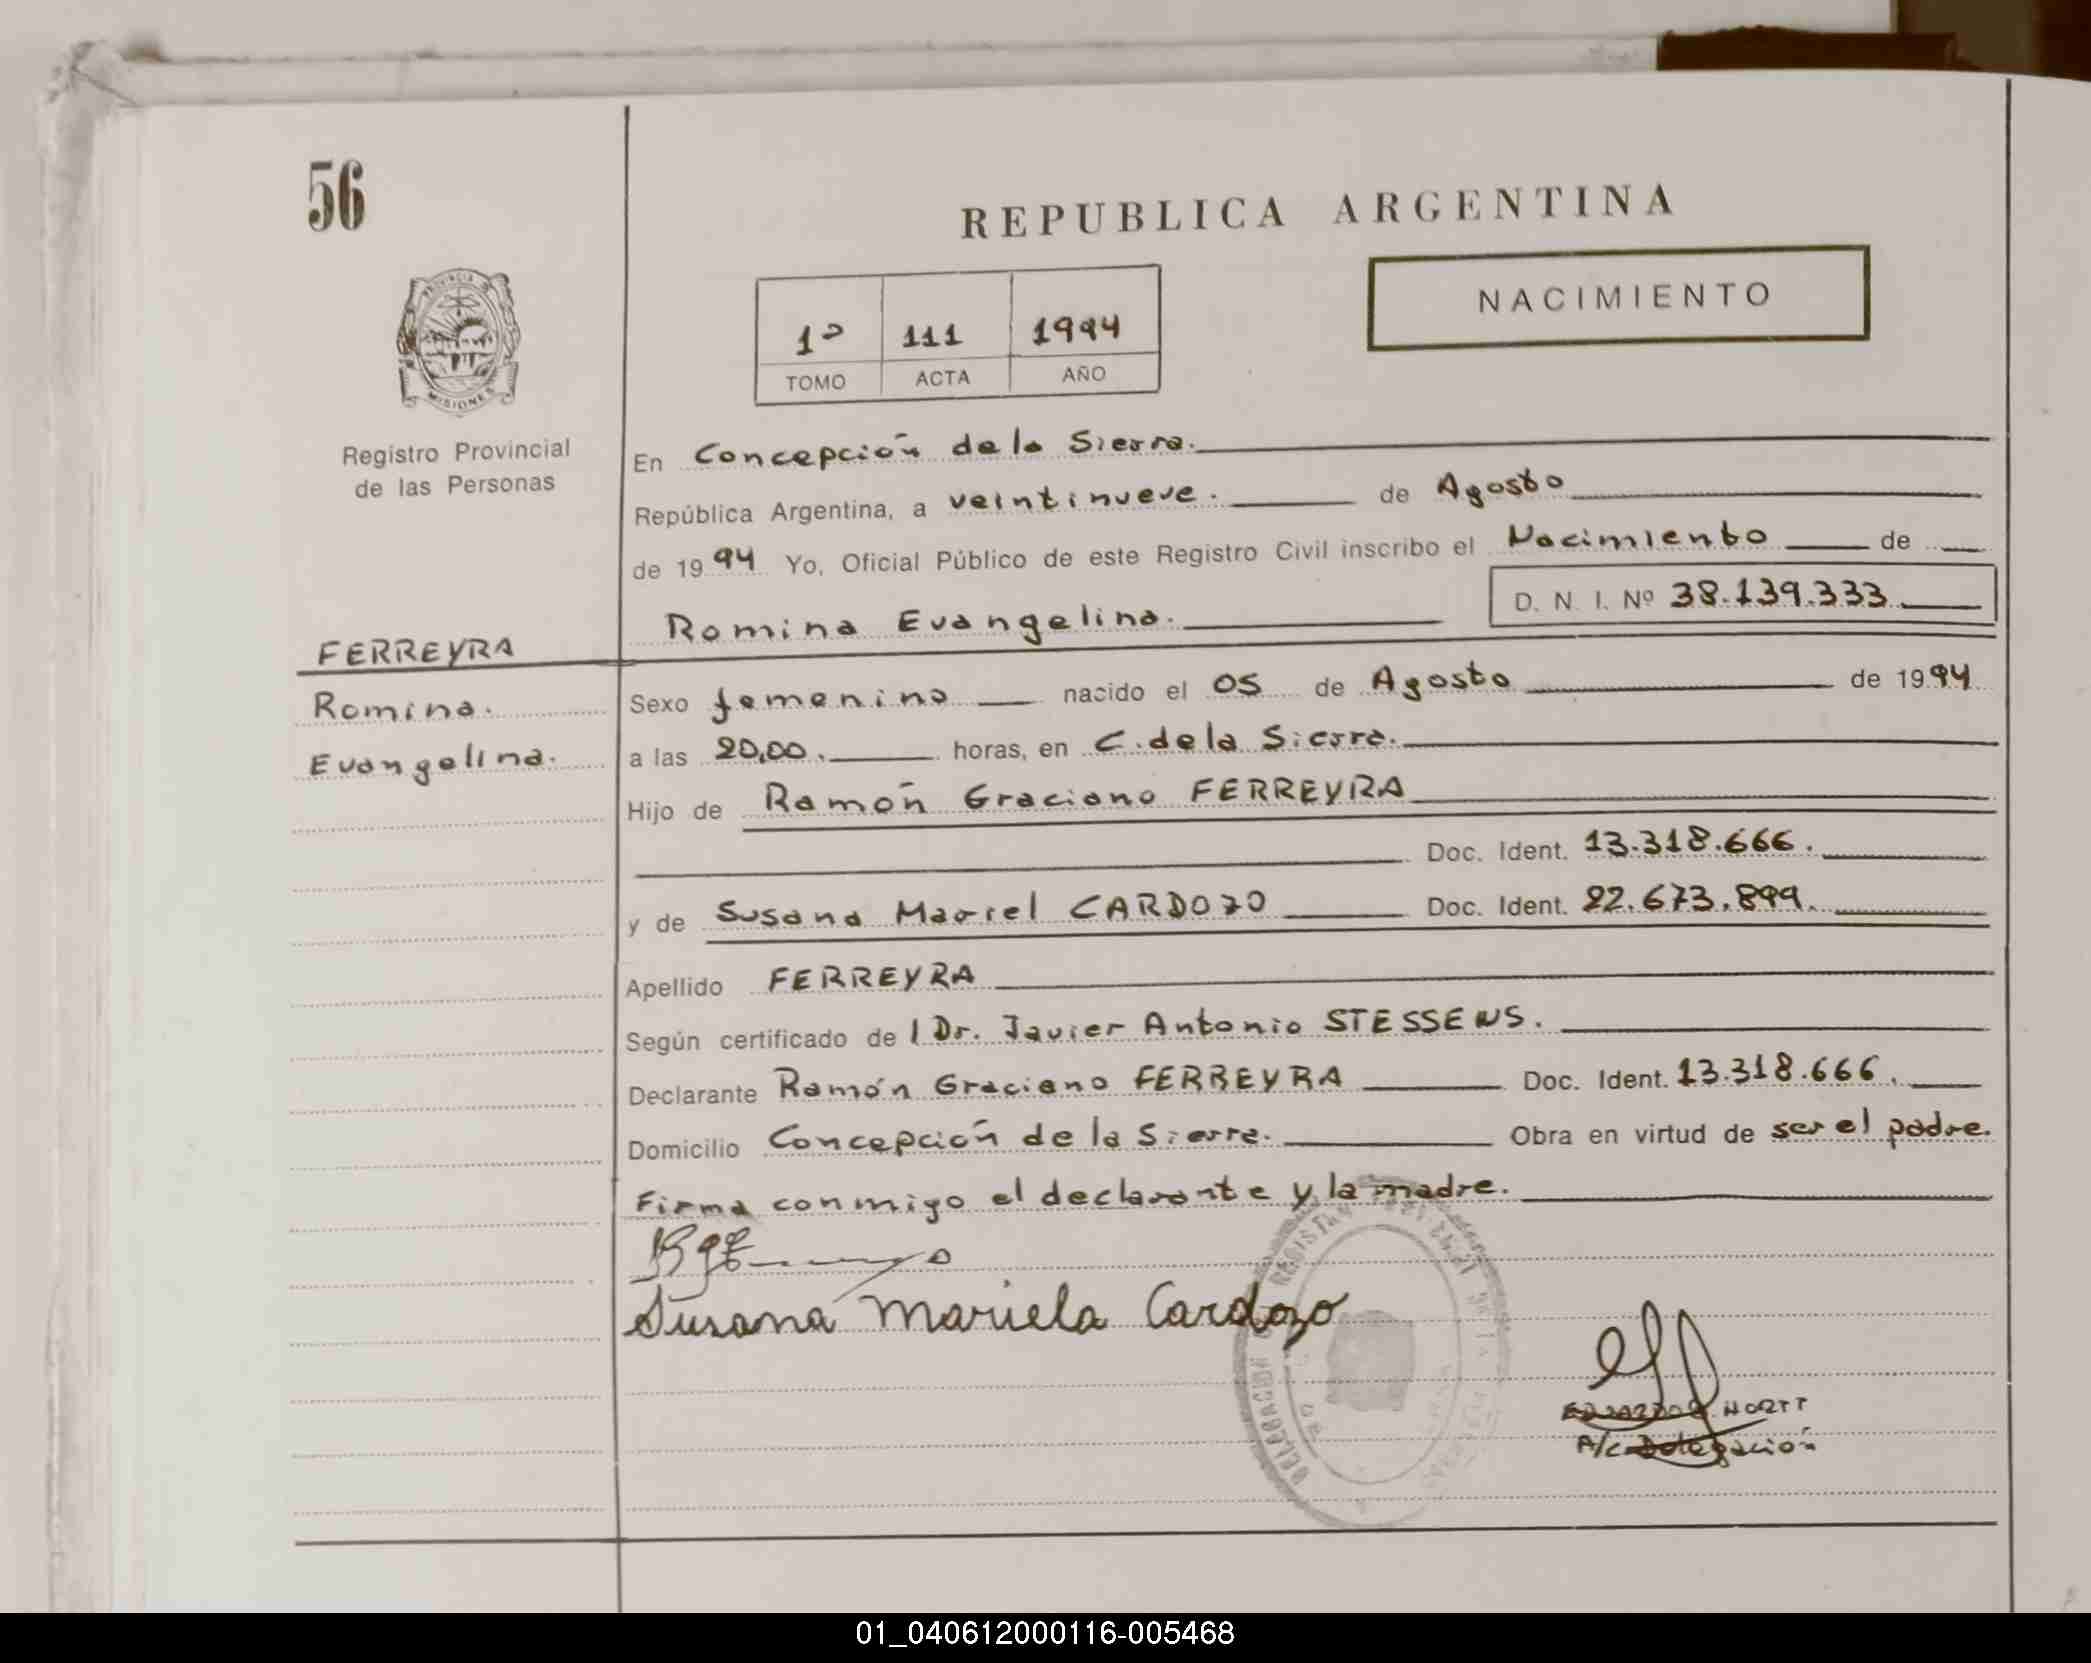 56
REPUBLICA ARGENTINA
NACIMIENTO
1º 111 1994
TOMO ACTA AÑO
PROVINCIA
MISIONES
Registro Provincial
de las Personas
En Concepción de la Sierra.
República Argentina, a veintinueve. de Agosto
de 1994 Yo, Oficial Público de este Registro Civil inscribo el Nacimiento de
D. N. I. Nº 38.139.333
Romina Evangelina.
FERREYRA
Romina.
Evangelina.
Sexo femenino nacido el 05 de Agosto de 1994
a las 20,00. horas, en C. de la Sierra.
Hijo de Ramón Graciano FERREYRA
Doc. Ident. 13.318.666.
y de Susana Mariel CARDOZO Doc. Ident. 22.673.899.
Apellido FERREYRA
Según certificado de l Dr. Javier Antonio STESSENS.
Declarante Ramón Graciano FERREYRA Doc. Ident. 13.318.666.
Domicilio Concepción de la Sierra. Obra en virtud de ser el padre.
Firma conmigo el declarante y la madre.
Susana Mariela Cardozo
A/c Delegación
01_040612000116-005468